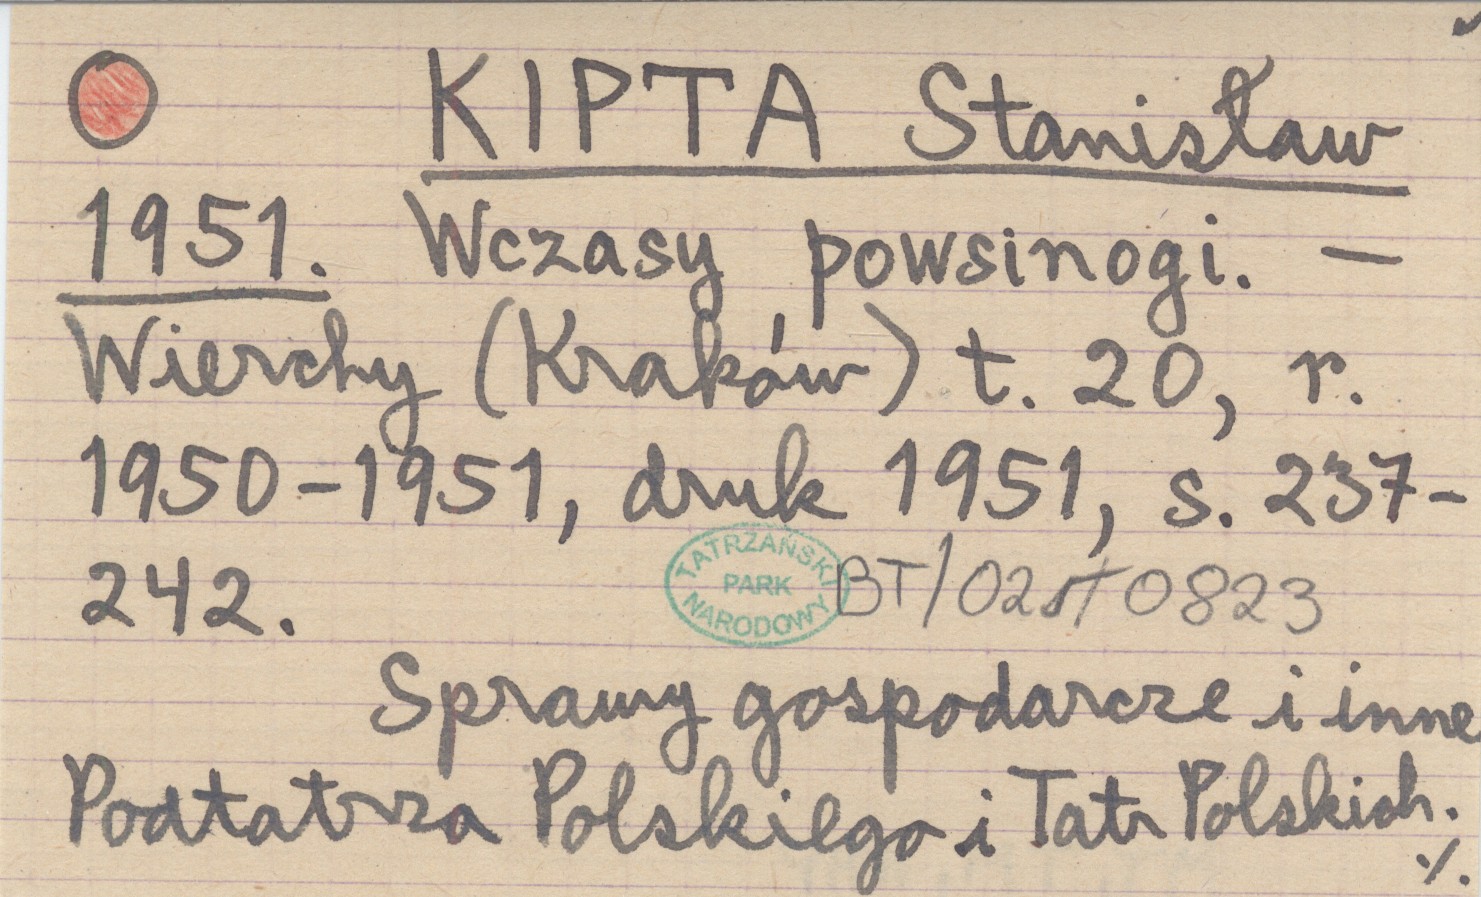 KIPTA Stanisław
1951. Wczasy powsinogi. —
Wierchy (Kraków) t. 20, r.
1950-1951, druk 1951, s. 237-
242.
TATRZAŃSKI
PARK
NARODOWY
BT/ 0823
Sprawy gospodarcze i inne
Podtatrza Polskiego i Tatr Polskich.
./.